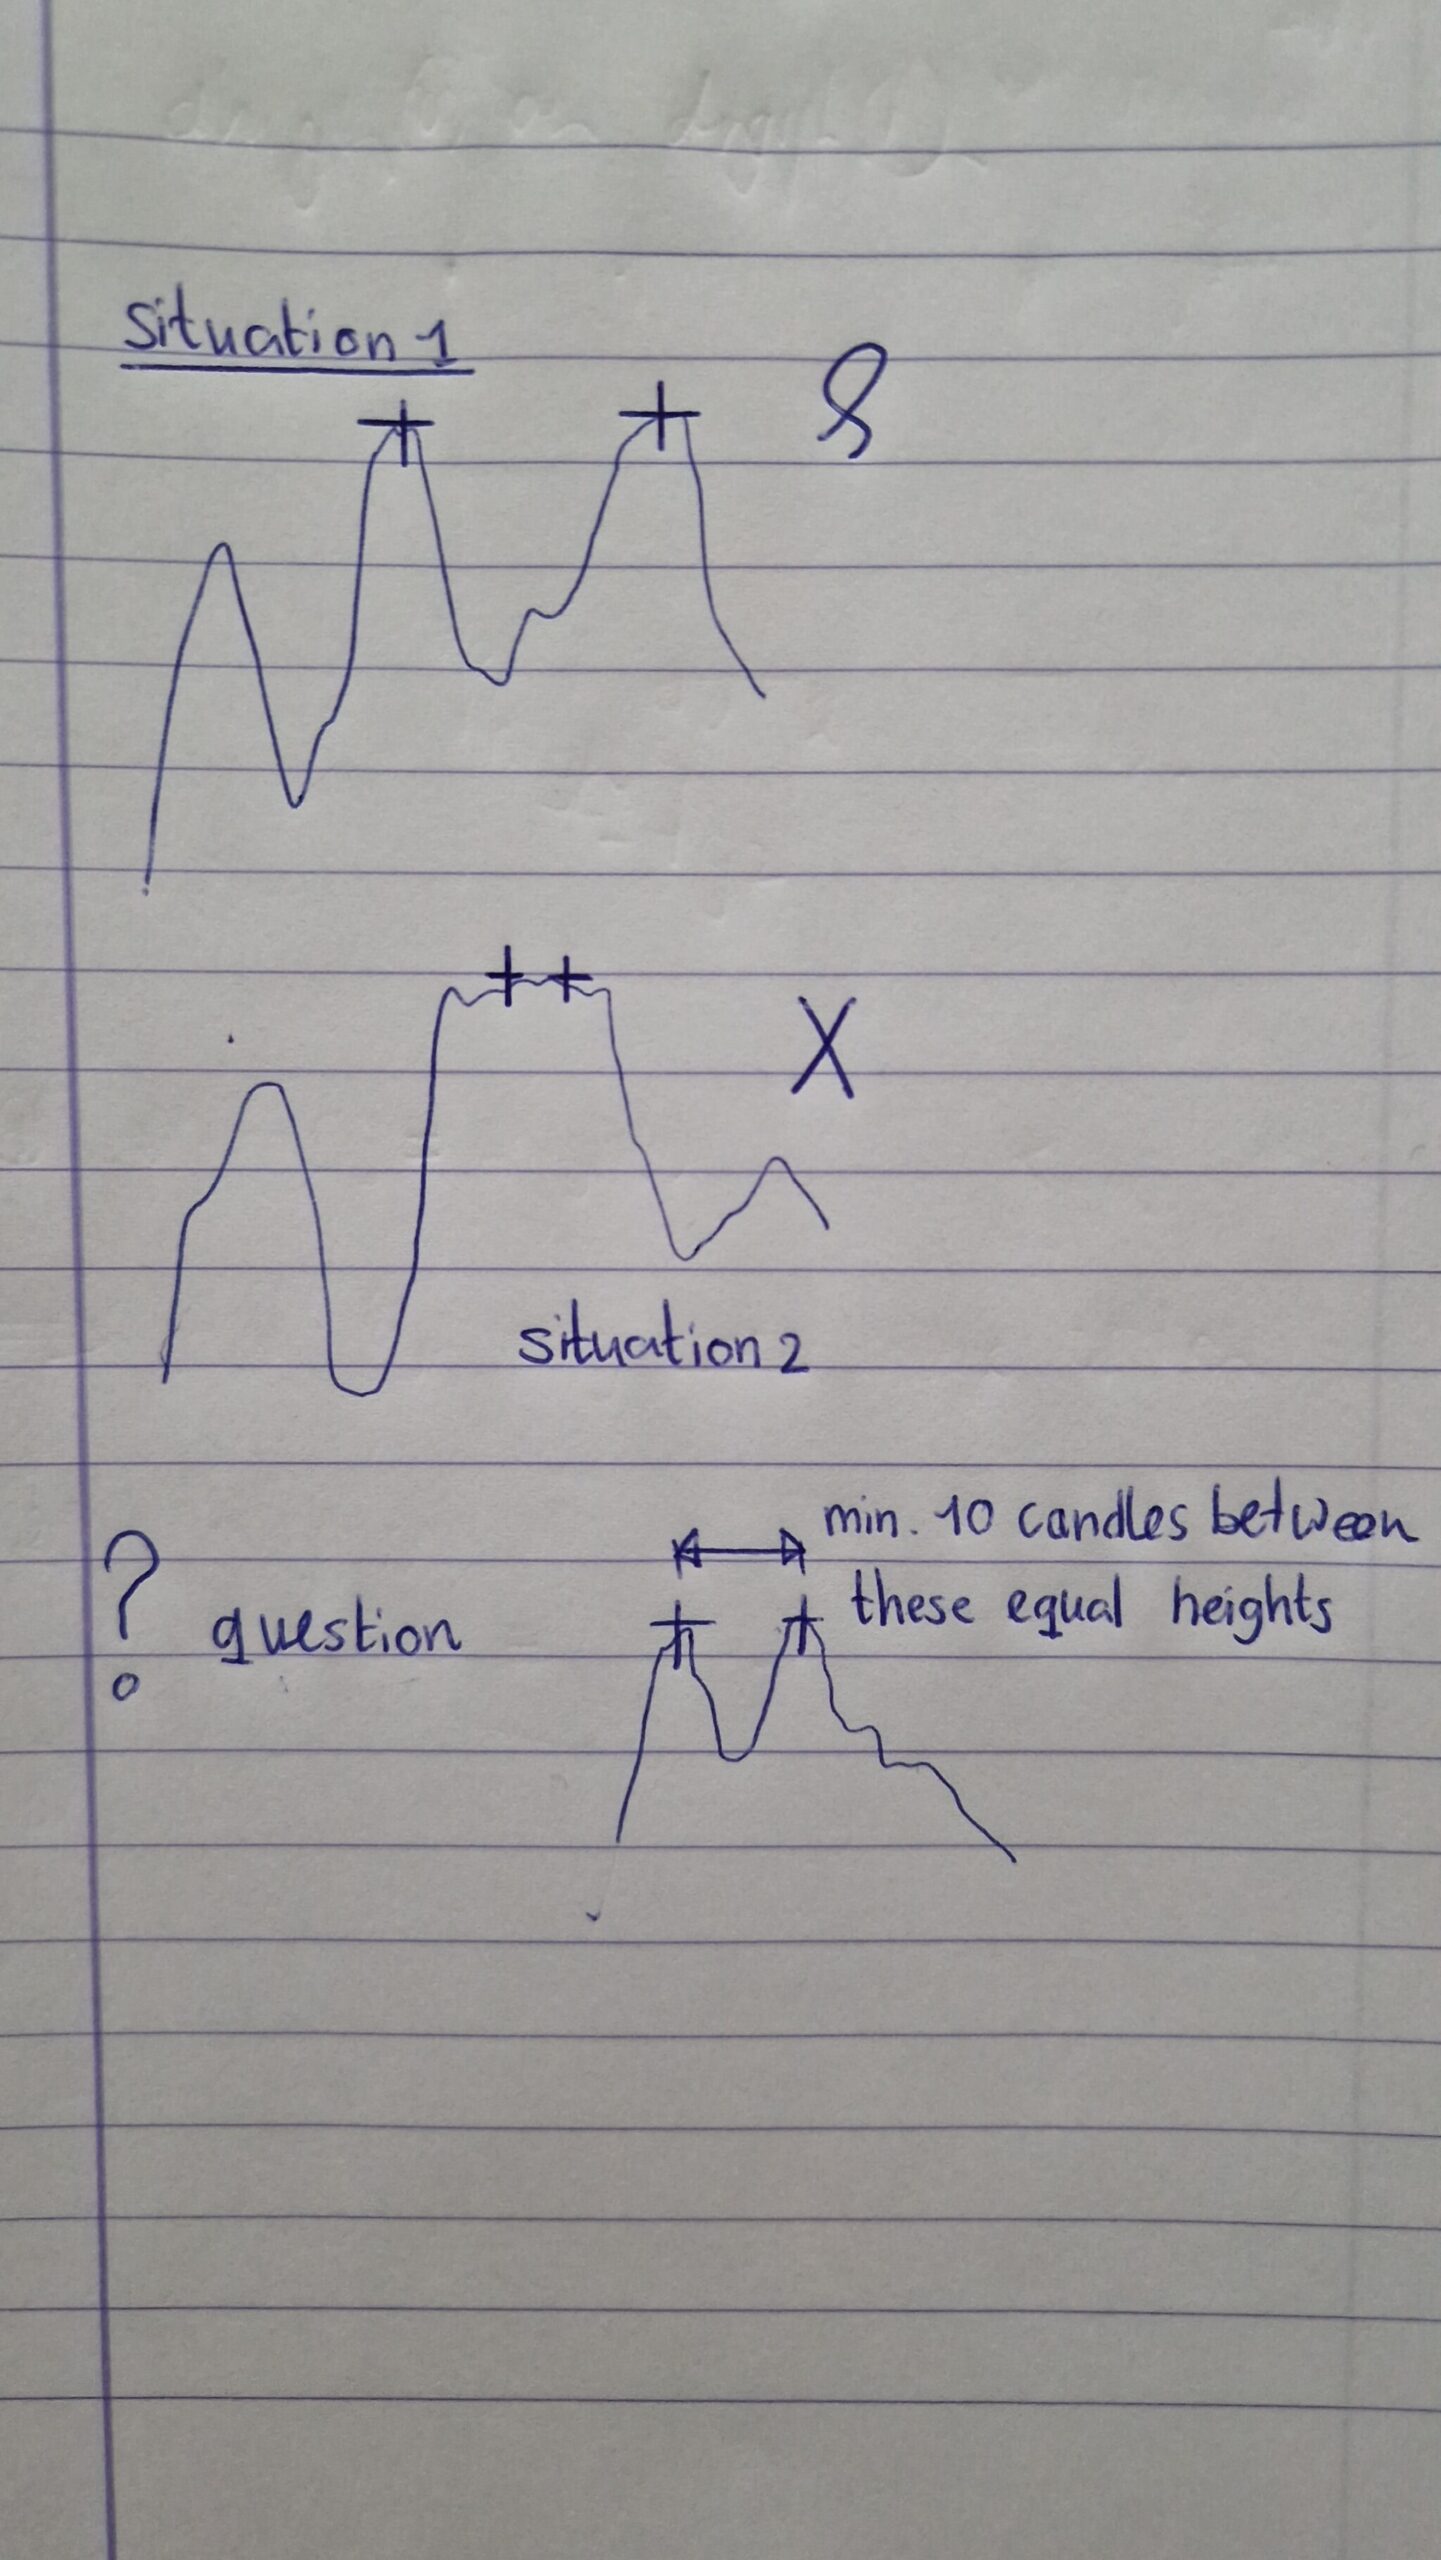 Situation 1
X
situation 2
min. 10 candles between
? question
these equal heights